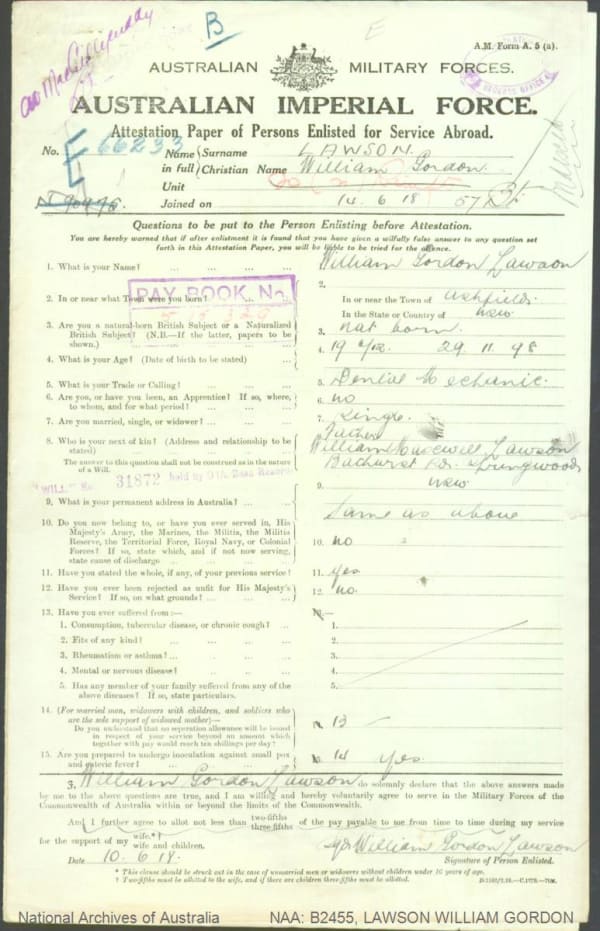 B
E
A.M. Form A. 5 (a).
AUSTRALIAN MILITARY FORCES.
AUSTRALIAN IMPERIAL FORCE.
Attestation Paper of Persons Enlisted for Service Abroad.
No. 66233 Name in full Surname LAWSON.
Christian Name William Gordon
Unit
Joined on 14.6.18
Questions to be put to the Person Enlisting before Attestation.
You are hereby warned that if after enlistment it is found that you have given a wilfully false answer to any question set
forth in this Attestation Paper, you will be liable to be tried for the offence.
1. What is your Name? ... William Gordon Lawson
2. In or near what Town were you born? ... 2. In or near the Town of Ashfield.
In the State or Country of NSW.
PAY BOOK No.
3. Are you a natural-born British Subject or a Naturalized
British Subject? (N.B.—If the latter, papers to be
shown.) ... 3. nat born.
4. What is your Age? (Date of birth to be stated) ... 4. 19 29.11.98
5. What is your Trade or Calling? ... 5. Dental Mechanic.
6. Are you, or have you been, an Apprentice? If so, where,
to whom, and for what period? ... 6. no
7. Are you married, single, or widower? ... 7. Single.
8. Who is your next of kin? (Address and relationship to be
stated) ... Father
William Lawson
Bathurst Rd. Springwood
NSW
The answer to this question shall not be construed as in the nature
of a Will.
"WILL" No. 31872 held by O/c. Base Records
9. What is your permanent address in Australia? ... 9. Same as above
10. Do you now belong to, or have you ever served in, His
Majesty's Army, the Marines, the Militia, the Militia
Reserve, the Territorial Force, Royal Navy, or Colonial
Forces? If so, state which, and if not now serving,
state cause of discharge ... 10. no
11. Have you stated the whole, if any, of your previous service? 11. yes
12. Have you ever been rejected as unfit for His Majesty's
Service? If so, on what grounds? ... 12. no.
13. Have you ever suffered from:—
1. Consumption, tubercular disease, or chronic cough? ... 1.
2. Fits of any kind? ... 2.
3. Rheumatism or asthma? ... 3.
4. Mental or nervous disease? 4.
5. Has any member of your family suffered from any of the
above diseases? If so, state particulars. 5.
14. (For married men, widowers with children, and soldiers who
are the sole support of widowed mother)—
Do you understand that no separation allowance will be issued
in respect of your service beyond an amount which
together with pay would reach ten shillings per day? ... 13 —
15. Are you prepared to undergo inoculation against small pox
and enteric fever? ... 14 yes.
I, William Gordon Lawson do solemnly declare that the above answers made
by me to the above questions are true, and I am willing and hereby voluntarily agree to serve in the Military Forces of the
Commonwealth of Australia within or beyond the limits of the Commonwealth.
And I further agree to allot not less than two-fifths three-fifths of the pay payable to me from time to time during my service
for the support of my wife.*†
wife and children.
Date 10.6.18. William Gordon Lawson
Signature of Person Enlisted.
* This clause should be struck out in the case of unmarried men or widowers without children under 16 years of age.
† Two-fifths must be allotted to the wife, and if there are children three-fifths must be allotted.
National Archives of Australia NAA: B2455, LAWSON WILLIAM GORDON